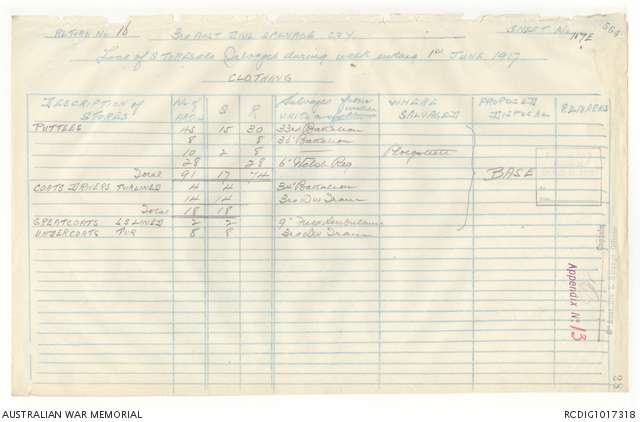 RETURN No 16 3RD AUST DIV SALVAGE COY. SHEET No. 167E
List of STORES Salvaged during week ending 1st JUNE 1917
CLOTHING
DESCRIPTION OF STORES No of S R Salvaged from UNITS WHERE SALVAGED PROPOSED DISPOSAL REMARKS
PUTTEES 45 15 30 33rd Battalion
8 8 36 Battalion
10 2 8 Ploegsteert
28 28 6" Welsh Reg
Total 91 17 74 BASE
COATS DRIVERS 4 4 34 Battalion
14 14 3rd Div Train
Total 18 18
GREATCOATS LINED 2 2 9"
UNDERCOATS FUR 8 8 3rd Div Train
Appendix No 13
AUSTRALIAN WAR MEMORIAL RCDIG1017318